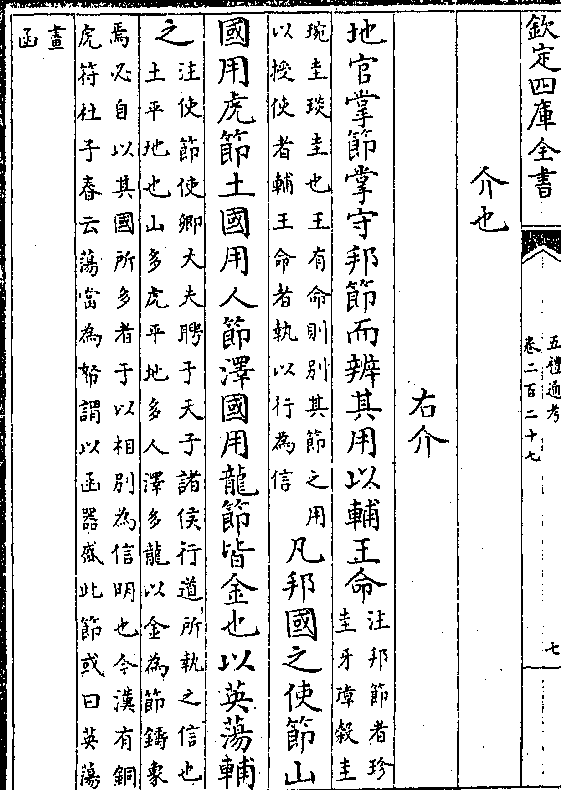 欽定四庫全書
五禮通考
卷二百二十七
七
介也
右介
地官掌節掌守邦節而辨其用以輔王命
注邦節者珍
圭牙璋穀圭
琬圭琰圭也王有命則別其節之用
以授使者輔王命者執以行為信
凡邦國之使節山
國用虎節土國用人節澤國用龍節皆金也以英蕩輔
之
注使節使卿大夫聘于天子諸侯行道所執之信也
土平地也山多虎平地多人澤多龍以金為節鑄象
焉必自以其國所多者于以相別為信明也今漢有銅
虎符杜子春云蕩當為帑謂以函器盛此節或曰英蕩
畫
函